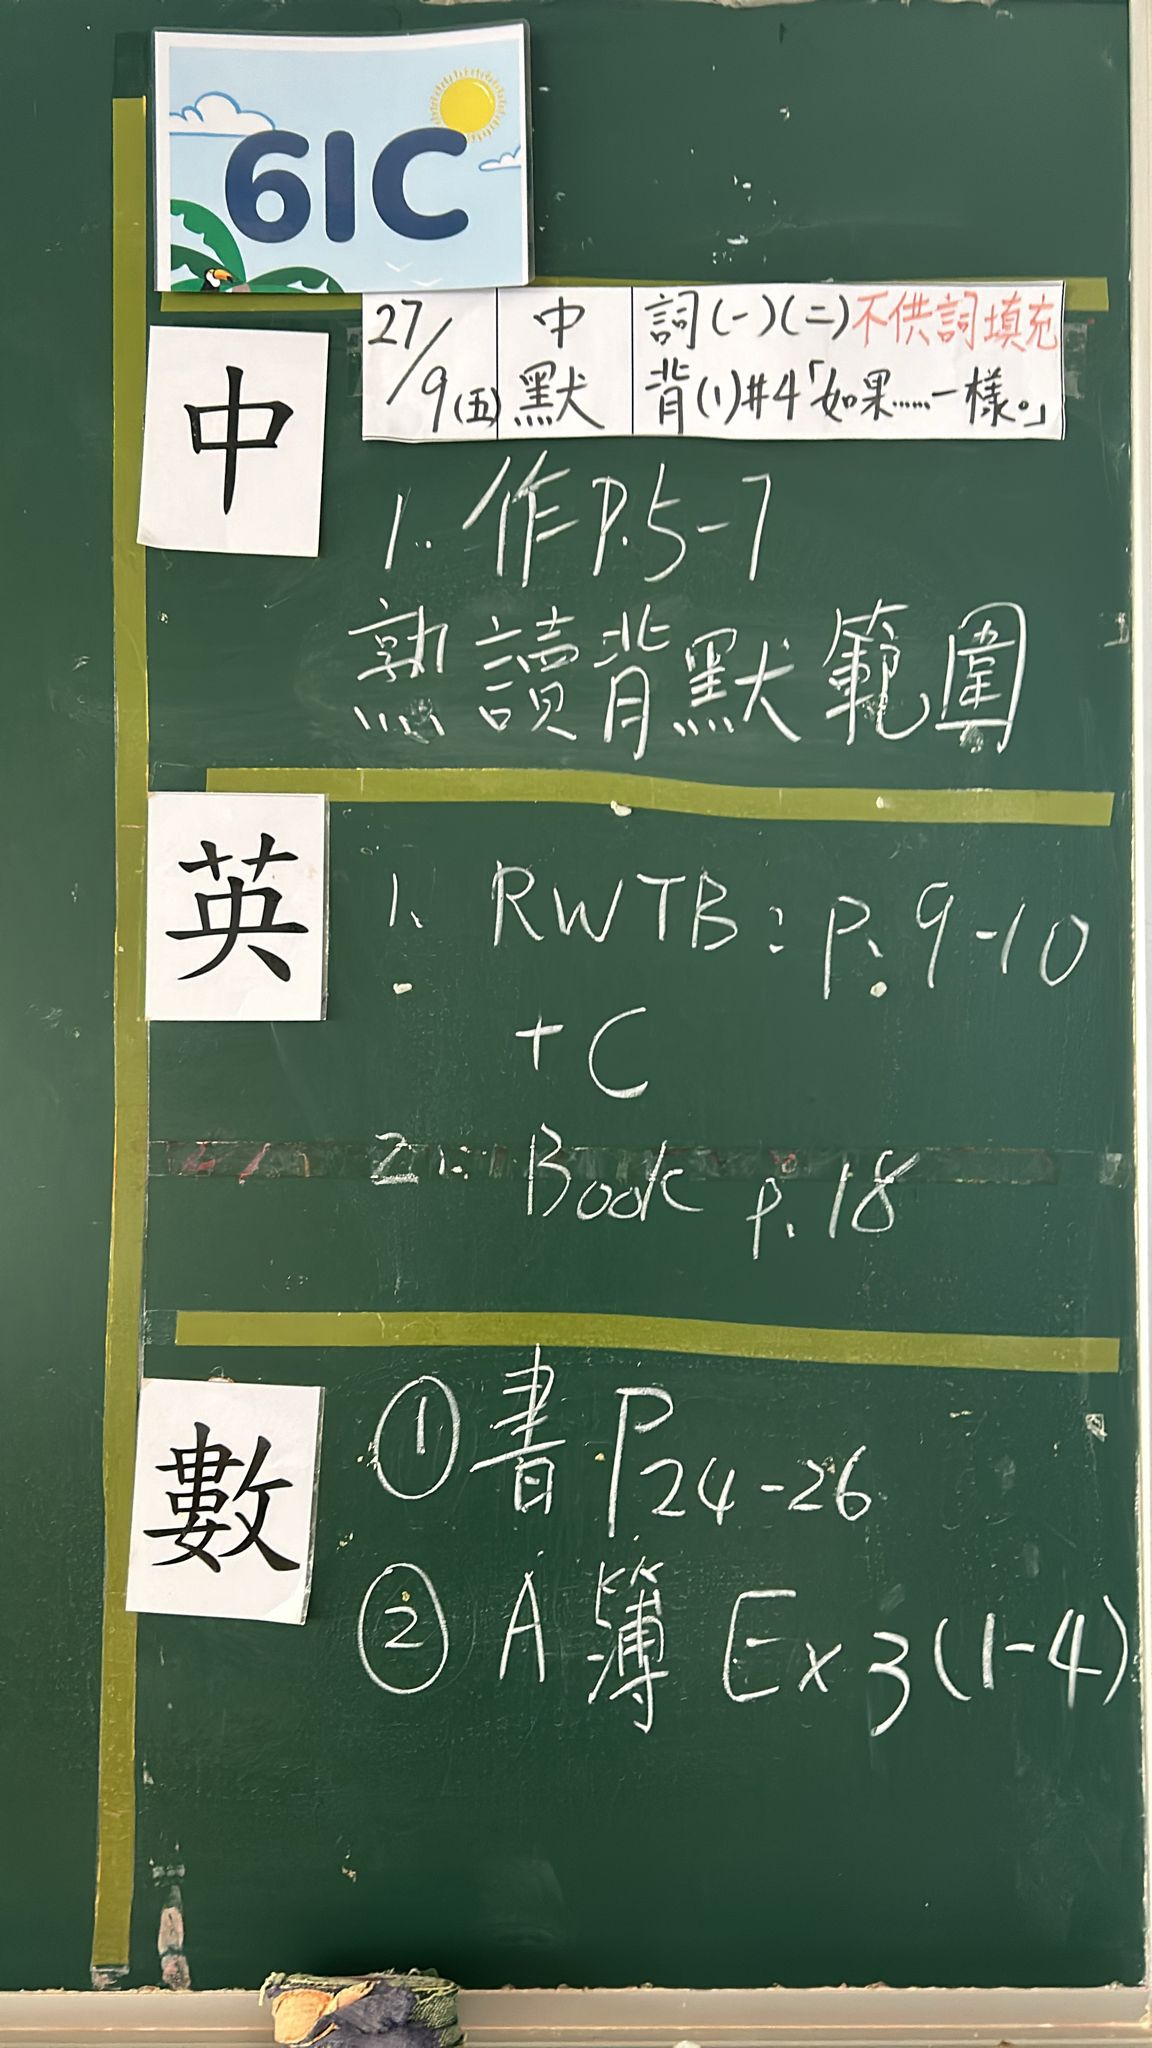 61C
27/9(五) 中默 詞(一)(二)不供詞填充
背(1)#4「如果……一樣。」
中
1. 作P.5-7
熟讀背默範圍
英
1. RWTB: p. 9-10
+ C
2. Book p. 18
數
① 書 P24-26
② A簿 Ex 3(1-4)